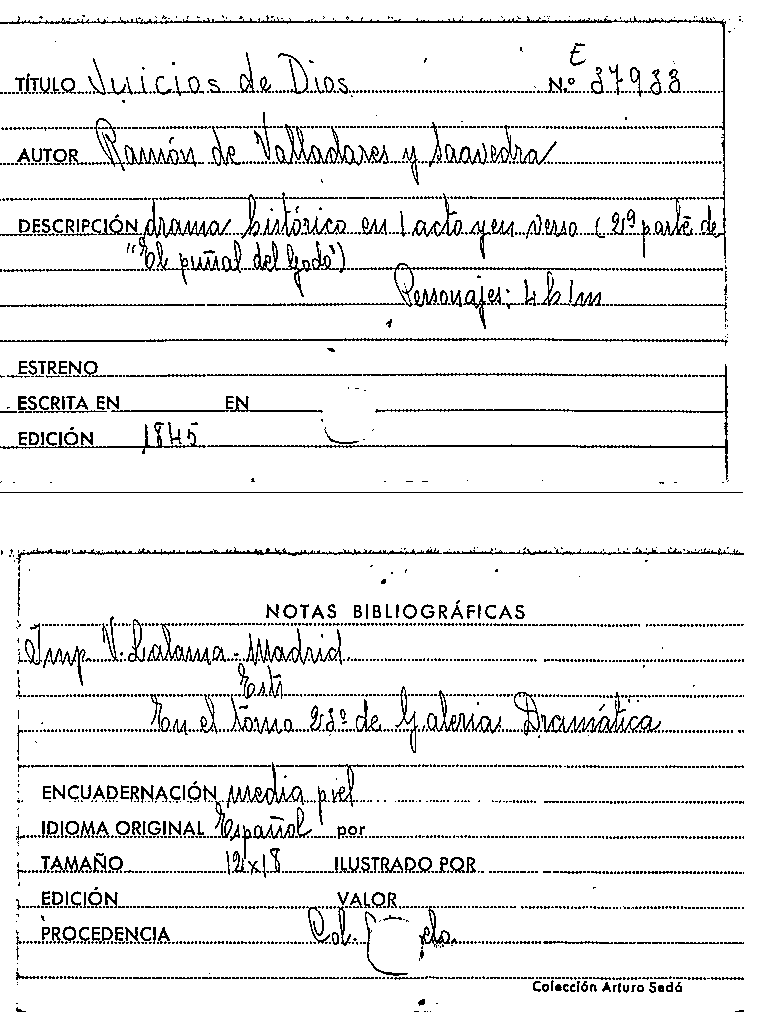 E
TÍTULO Juicios de Dios N.º 37933
AUTOR Ramón de Valladares y Saavedra
DESCRIPCIÓN drama histórico en 1 acto y en verso (2ª parte de
"El puñal del Godo")
Personajes: 4 h 1 m
ESTRENO
ESCRITA EN EN
EDICIÓN 1845
NOTAS BIBLIOGRÁFICAS
Imp. V. Lalama - Madrid.
Está
En el tomo 23º de Galeria Dramática
ENCUADERNACIÓN media piel
IDIOMA ORIGINAL Español por
TAMAÑO 12x18 ILUSTRADO POR
EDICIÓN VALOR
PROCEDENCIA Col.
Colección Arturo Sedó